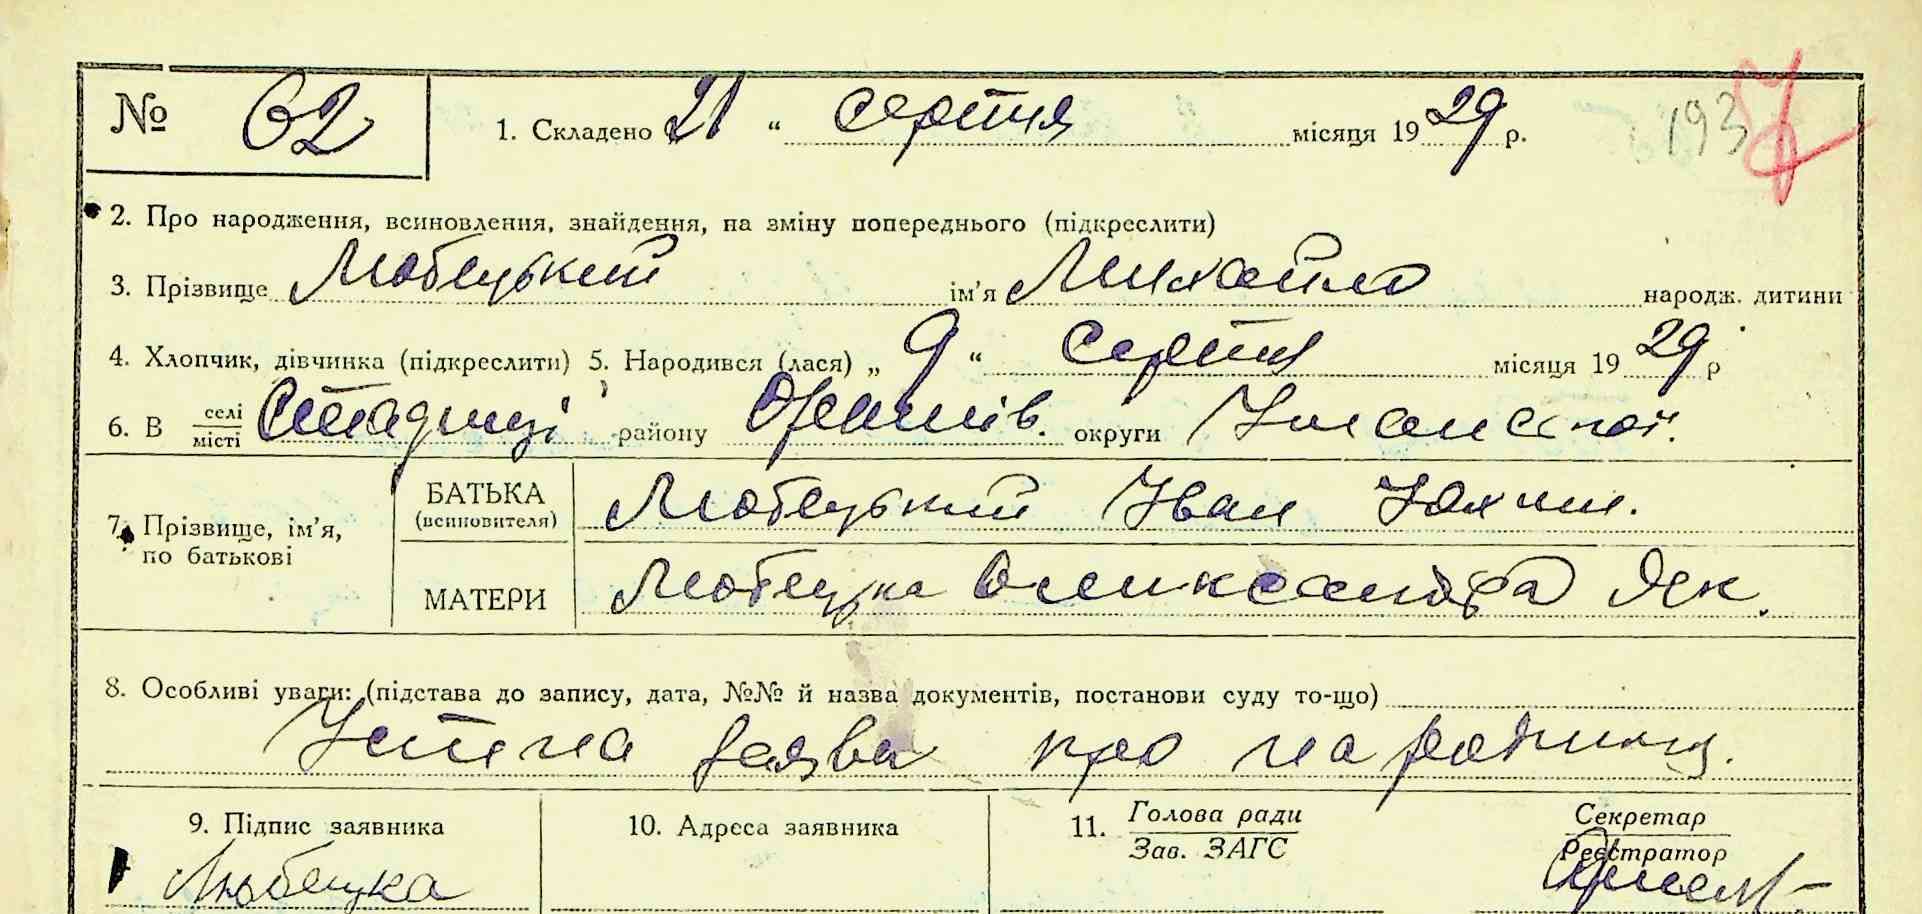 № 62
1. Складено 21 “ серпня місяця 1929 р.
193
2. Про народження, всиновлення, знайдення, на зміну попереднього (підкреслити)
3. Прізвище Любецький ім’я Михайло народж. дитини
4. Хлопчик, дівчинка (підкреслити) 5. Народився (лася) „ 9 “ серпня місяця 1929 р
6. В селі місті Стадниці району Оратів. округи Уманськ.
7. Прізвище, ім’я, по батькові
БАТЬКА (всиновителя) Любецький Іван Юхим.
МАТЕРИ Любецька Олександра Як.
8. Особливі уваги: (підстава до запису, дата, №№ й назва документів, постанови суду то-що)
Устна заява про народинц.
9. Підпис заявника
10. Адреса заявника
11. Голова ради
Зав. ЗАГС
Секретар
Реєстратор
Любецка